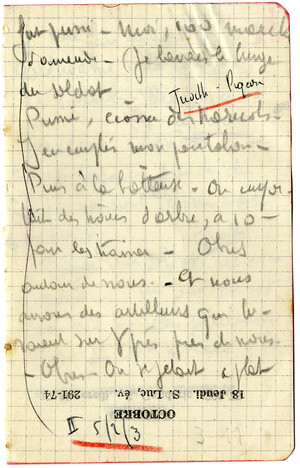 fut puni - Moi, 100 marcks
d'amende - (Je lavais le linge
du soldat
Judith - Pigeon
des haricots -
J'en emplis mon pantalon -
Puis à la batteuse - On empor-
tait des d'arbre, à 10 -
pour les trainer - Obus
autour de nous. - Et nous
avions des artilleurs qui ti-
raient sur Ypres près de nous -
- Obus - On se jetait à plat
18 Jeudi. S. Luc, év. 291-74
OCTOBRE
II 5/2/3